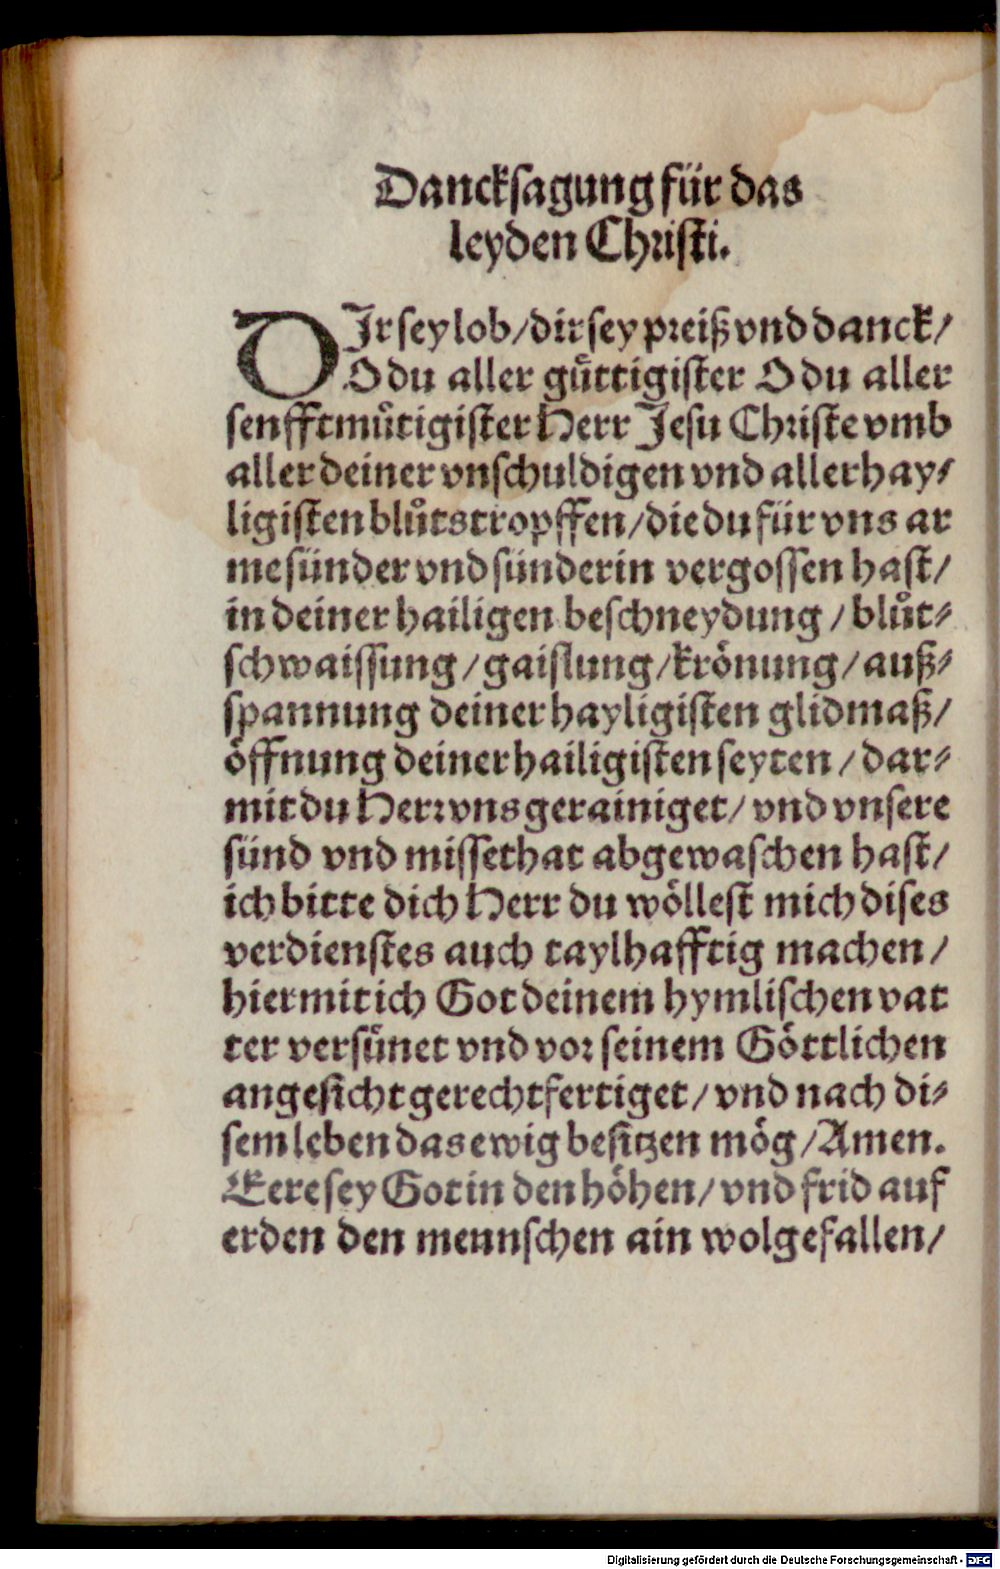 Danckſagung für das
leyden Chriſti.
DIr ſey lob/dir ſey preiß vnd danck/
O du aller gůttigiſter O du aller
ſenfftmůtigiſter Herr Jeſu Chriſte vmb
aller deiner vnſchuldigen vnd allerhay⸗
ligiſten blůtstropffen/die du für vns ar
me ſünder vnd ſünderin vergoſſen haſt/
in deiner hailigen beſchneydung/blůt⸗
ſchwaiſſung/gaiſlung/krönung/auß⸗
ſpannung deiner hayligiſten glidmaß/
öffnung deiner hailigiſten ſeyten/dar⸗
mit du Herr vns gerainiget/vnd vnſere
ſünd vnd miſſethat abgewaſchen haſt/
ich bitte dich Herr du wölleſt mich diſes
verdienſtes auch taylhafftig machen/
hiermit ich Got deinem hymliſchen vat
ter verſünet vnd vor ſeinem Göttlichen
angeſicht gerechtfertiget/vnd nach di⸗
ſem leben das ewig beſitzen mög/Amen.
Eere ſey Got in den höhen/vnd frid auf
erden den mennſchen ain wolgefallen/
Digitalisierung gefördert durch die Deutsche Forschungsgemeinschaft - DFG